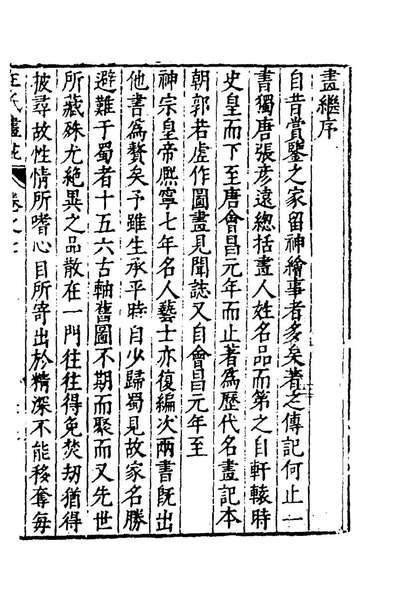 畫繼序
自昔賞鑒之家留神繪事者多矣著之傳記何止一
書獨唐張彥遠總括畫人姓名品而第之自軒轅時
史皇而下至唐會昌元年而止著為歷代名畫記本
朝郭若虛作圖畫見聞誌又自會昌元年至
神宗皇帝熙寧七年名人藝士亦復編次兩書既出
他書為贅矣予雖生承平時自少歸蜀見故家名勝
避難于蜀者十五六古軸舊圖不期而聚而又先世
所藏殊尤絕異之品散在一門往往得免焚劫猶得
披尋故性情所嗜心目所寄出於精深不能移奪每
王氏畫苑 卷之七